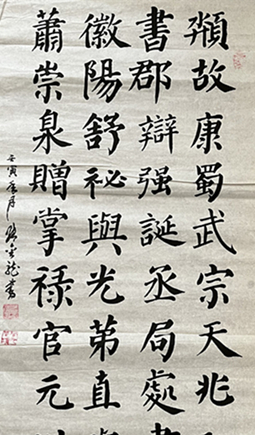 頖故康蜀武宗天兆
書郡辯强誕丞局處書
徽陽舒祕與光第直
蕭崇泉贈掌祿官元
壬寅年月
書